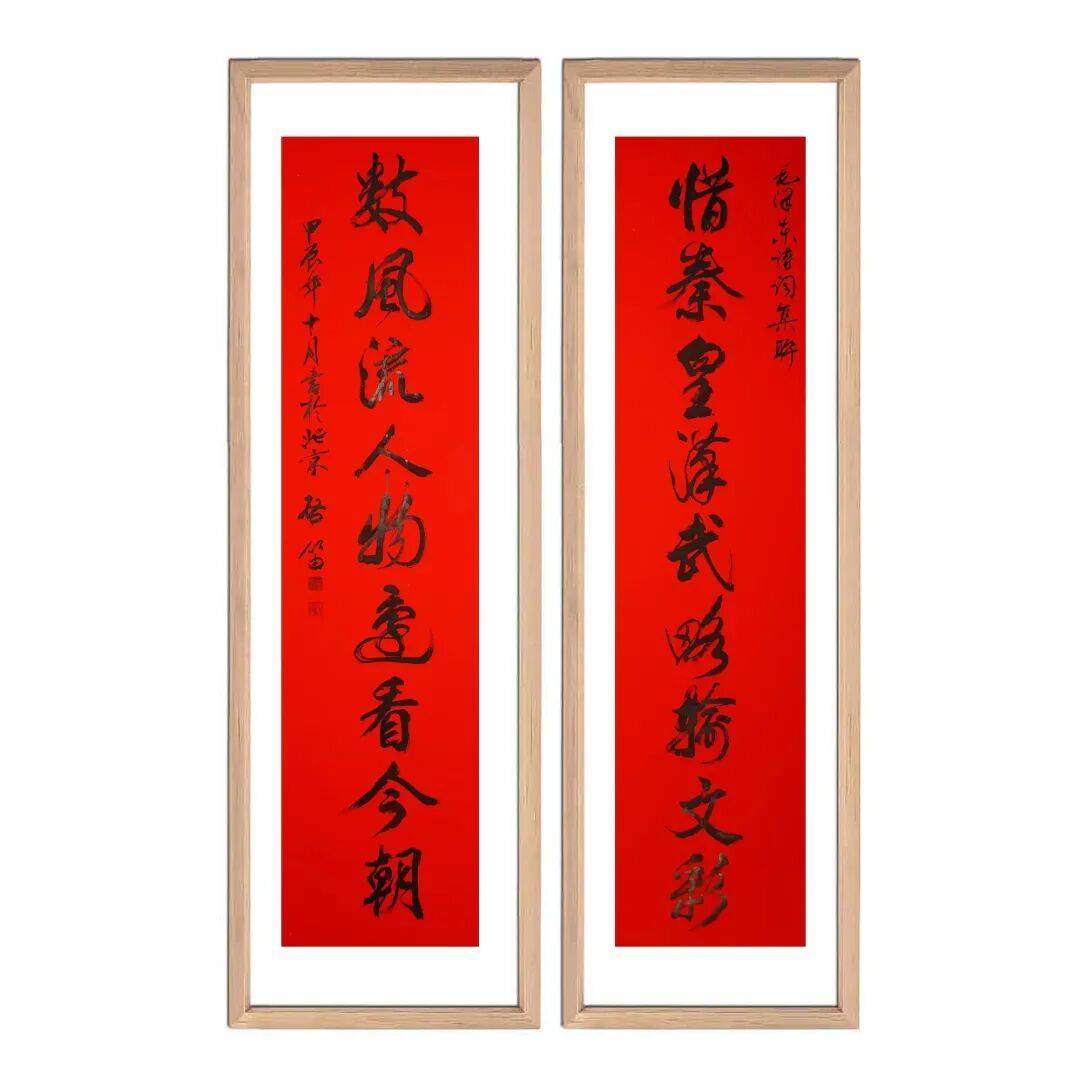 毛泽东诗词集联
惜秦皇漢武略输文彩
数風流人物还看今朝
甲辰年十月書於北京 啓笛